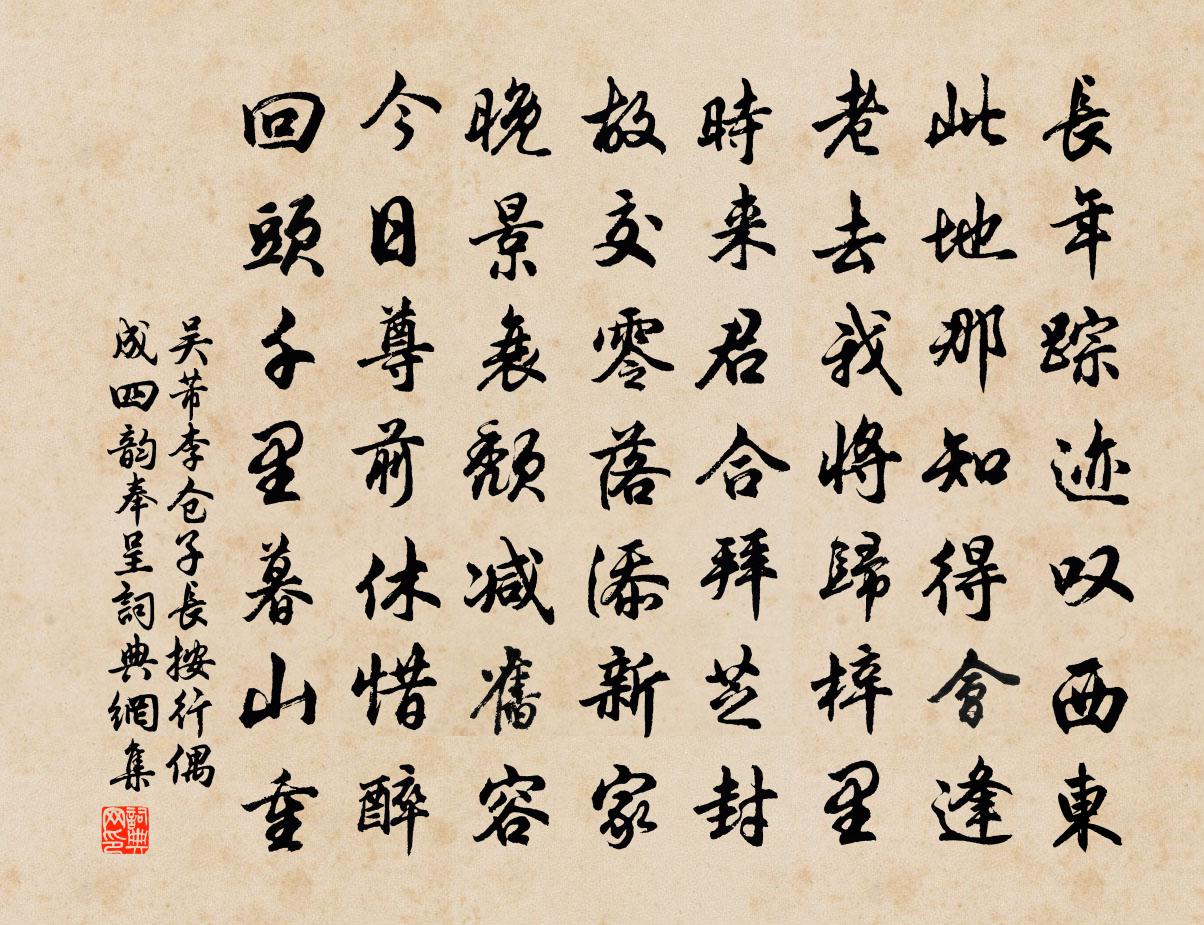 長年踪迹叹西東
此地那知得會逢
老去我将歸梓里
時来君合拜芝封
故交零落添新家
晚景衰颓减舊容
今日尊前休惜醉
回頭千里暮山重
吴芾李仓子長按行偶
成四韵奉呈詞典網集
詞典网印